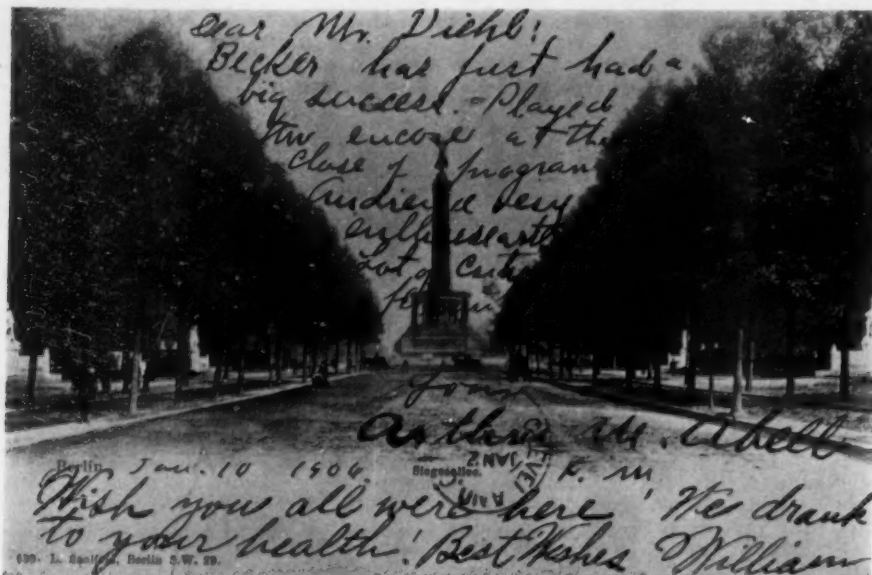 Dear Mr. Diehl:
Becker has just had a
big success. - Played
two encore at the
close of program
Audience very
enthusiastic
Lot of
Yours
Arthur M. Abell
Berlin Jan. 10 1906. Siegesallee.
Wish you all were here! We drank
to your health! Best Wishes William
Berlin S.W. 29.